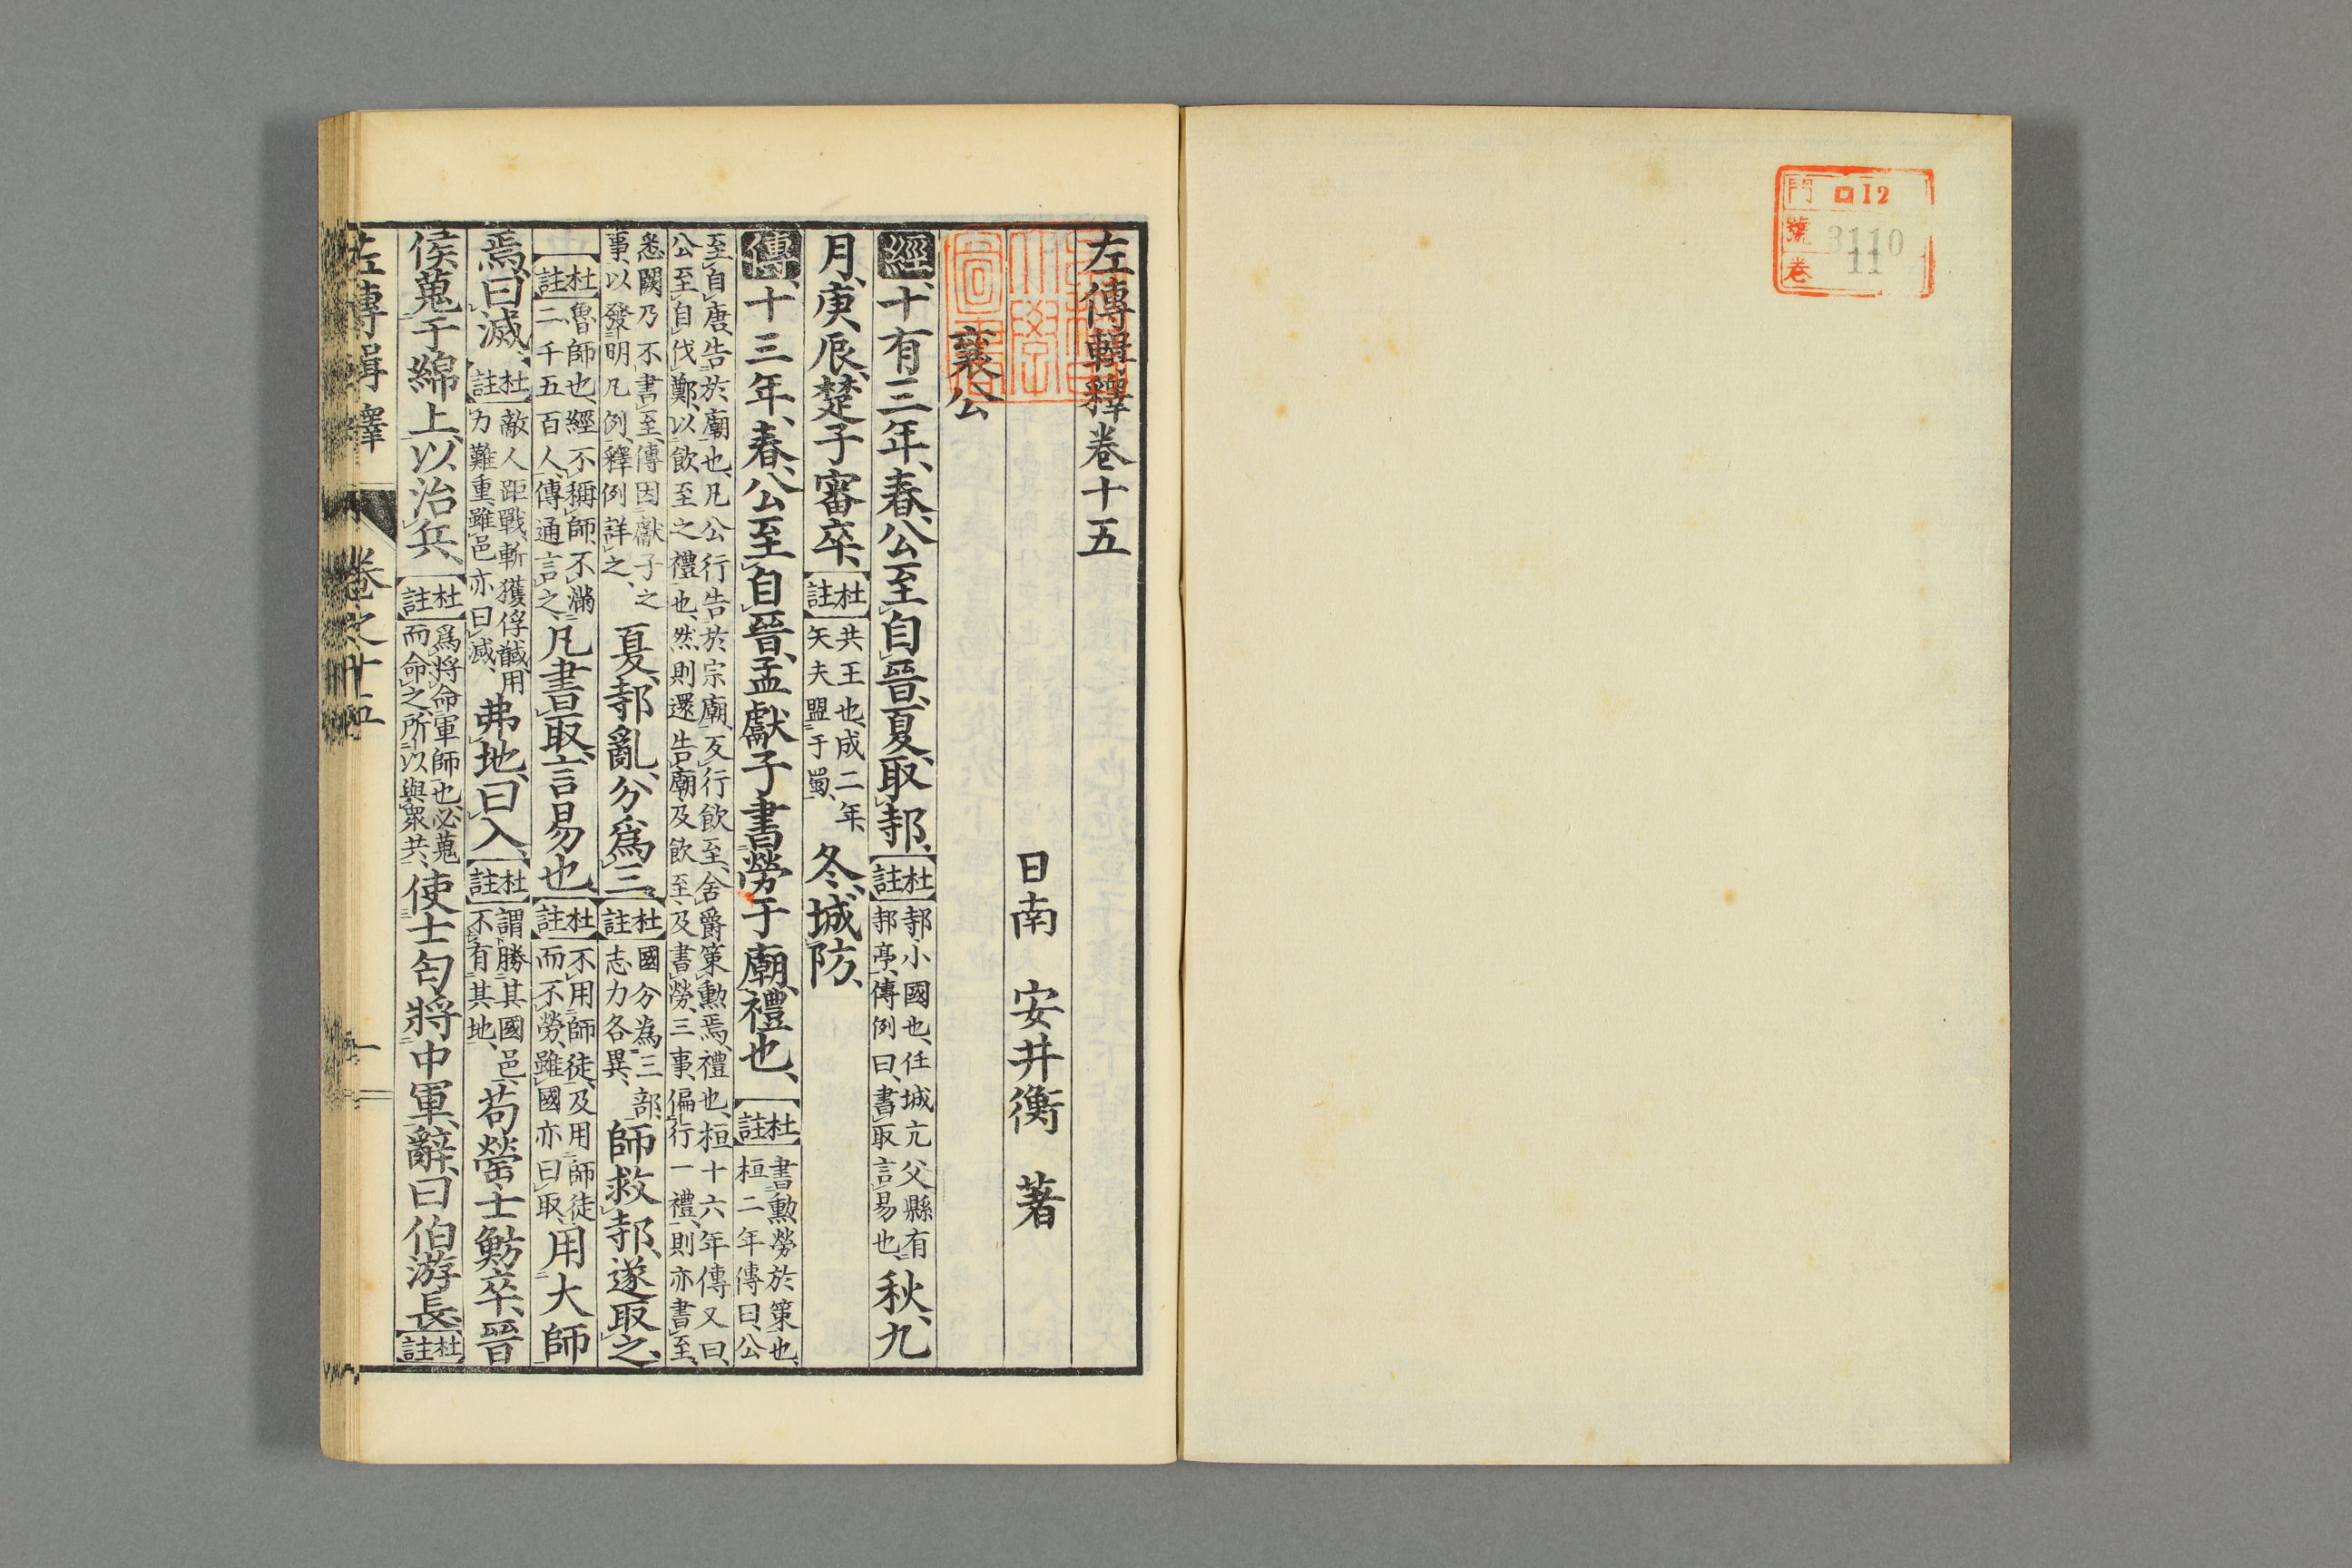 門 ロ12
號 3110
卷 11
左傳輯釋卷十五
日南 安井衡 著
襄公
經、十有三年、春、公至自晉、夏、取邿、杜註 邿小國也、任城亢父縣有邿亭、傳例曰、書取言易也、秋、九
月、庚辰、楚子審卒、杜註 共王也、成二年、大夫盟于蜀、冬、城防、
傳、十三年、春、公至自晉、孟獻子書勞于廟、禮也、杜註 書勳勞於策也、桓二年傳曰、公
至自唐、告於廟也、凡公行告於宗廟、反行飲至、舍爵策勳焉、禮也、桓十六年傳又曰、公至自伐鄭、以飲至之禮也、然則還告廟、及飲至、及書勞、三事、偏行一禮、則亦書至、
悉闕乃不書至、傳因獻子之事、以發明凡例、釋例詳之、夏、邿亂、分爲三、杜註 國分為三部、志力各異、師救邿、遂取之、
杜註 魯師也、經不稱師、不滿二千五百人、傳通言之、凡書取、言易也、杜註 不用師徒、及用師徒而不勞、雖國亦曰取、用大師
焉、曰滅、杜註 敵人距戰、斬獲俘馘、用力難重、雖邑亦曰滅、弗地、曰入、杜註 謂勝其國邑、不有其地、荀罃士魴卒、晉
侯蒐于綿上、以治兵、杜註 爲將命軍師也、必蒐而命之、所以與衆共、使士匄將中軍、辭、曰伯游長、杜註
左傳輯釋 卷之十五 一